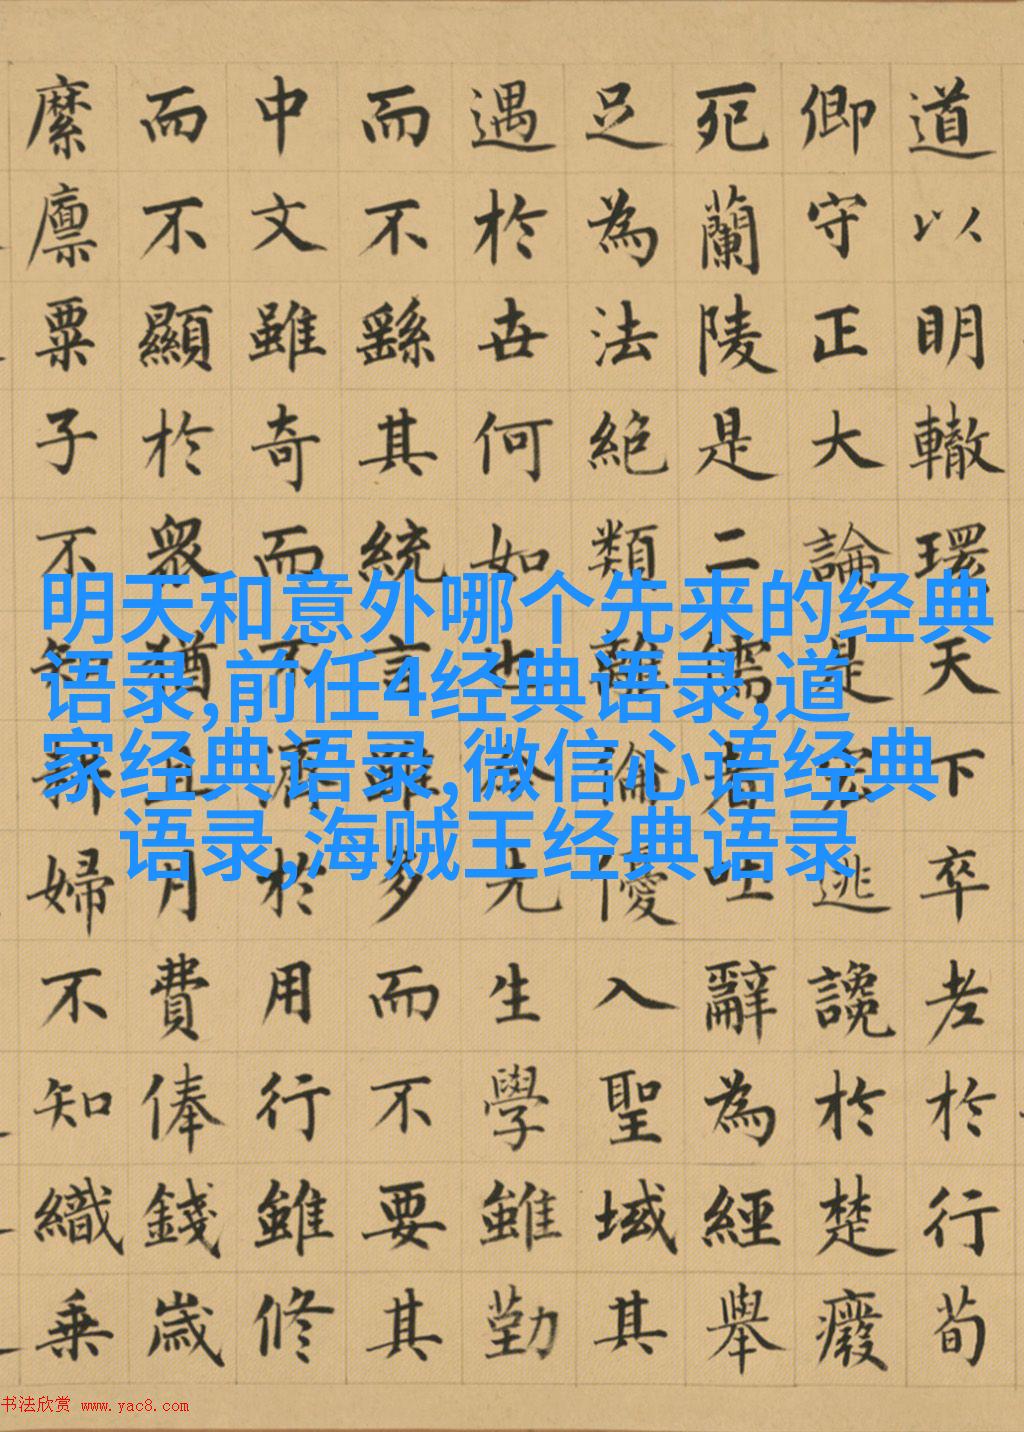 道以明轍環天下卒老於行荀
卿守正大論是宏逃讒於楚廢
死蘭陵是二儒者吐辭為經舉
足為法絕類離倫優入聖域其
遇於世何如也今先生學雖勤
而不繇其統言雖多而不要其
中文雖奇而不濟於用行雖修
而不顯於衆猶且月費俸錢歲
縻廩粟子不知耕婦不知織乘
明天和意外哪个先来的经典
语录,前任4经典语录,道
家经典语录,微信心语经典
语录,海贼王经典语录
书法欣赏 www.yac8.com